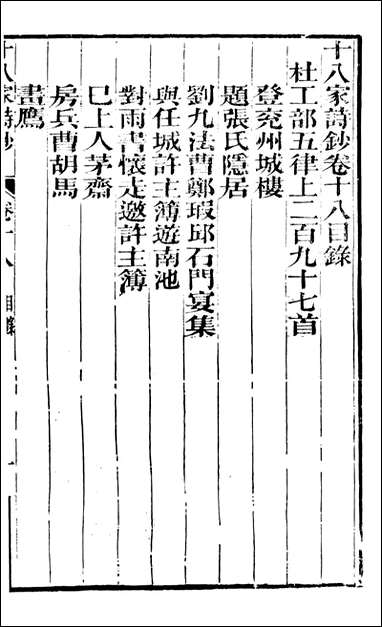 十八家詩鈔卷十八目錄
杜工部五律上二百九十七首
登兖州城樓
題張氏隱居
劉九法曹鄭瑕邱石門宴集
與任城許主簿遊南池
對雨書懷走邀許主簿
巳上人茅齋
房兵曹胡馬
畫鷹
十八家詩鈔 卷十八 目錄 一